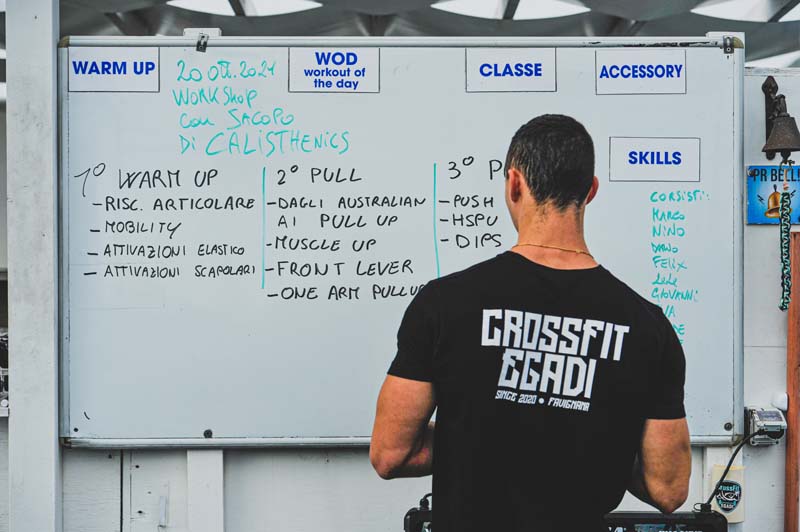 WARM UP
WOD
workout of
the day
CLASSE
ACCESSORY
SKILLS
20 Ott. 2024
WORKSHOP
CON SACOPO
Di CALISTHENICS
1° WARM UP
- RISC. ARTICOLARE
- MOBILITY
- ATTIVAZIONI ELASTICO
- ATTIVAZIONI SCAPOLARI
2° PULL
- DAGLI AUSTRALIAN
AI PULL UP
- MUSCLE UP
- FRONT LEVER
- ONE ARM PULLUP
3° P
- PUSH
- HSPU
- DIPS
CORSISTI:
MARCO
NINO
FELIX
GIOVANNI
PR BELL
CROSSFIT
EGADI
SINCE 2020 • FAVIGNANA
CROSSFIT
EGADI